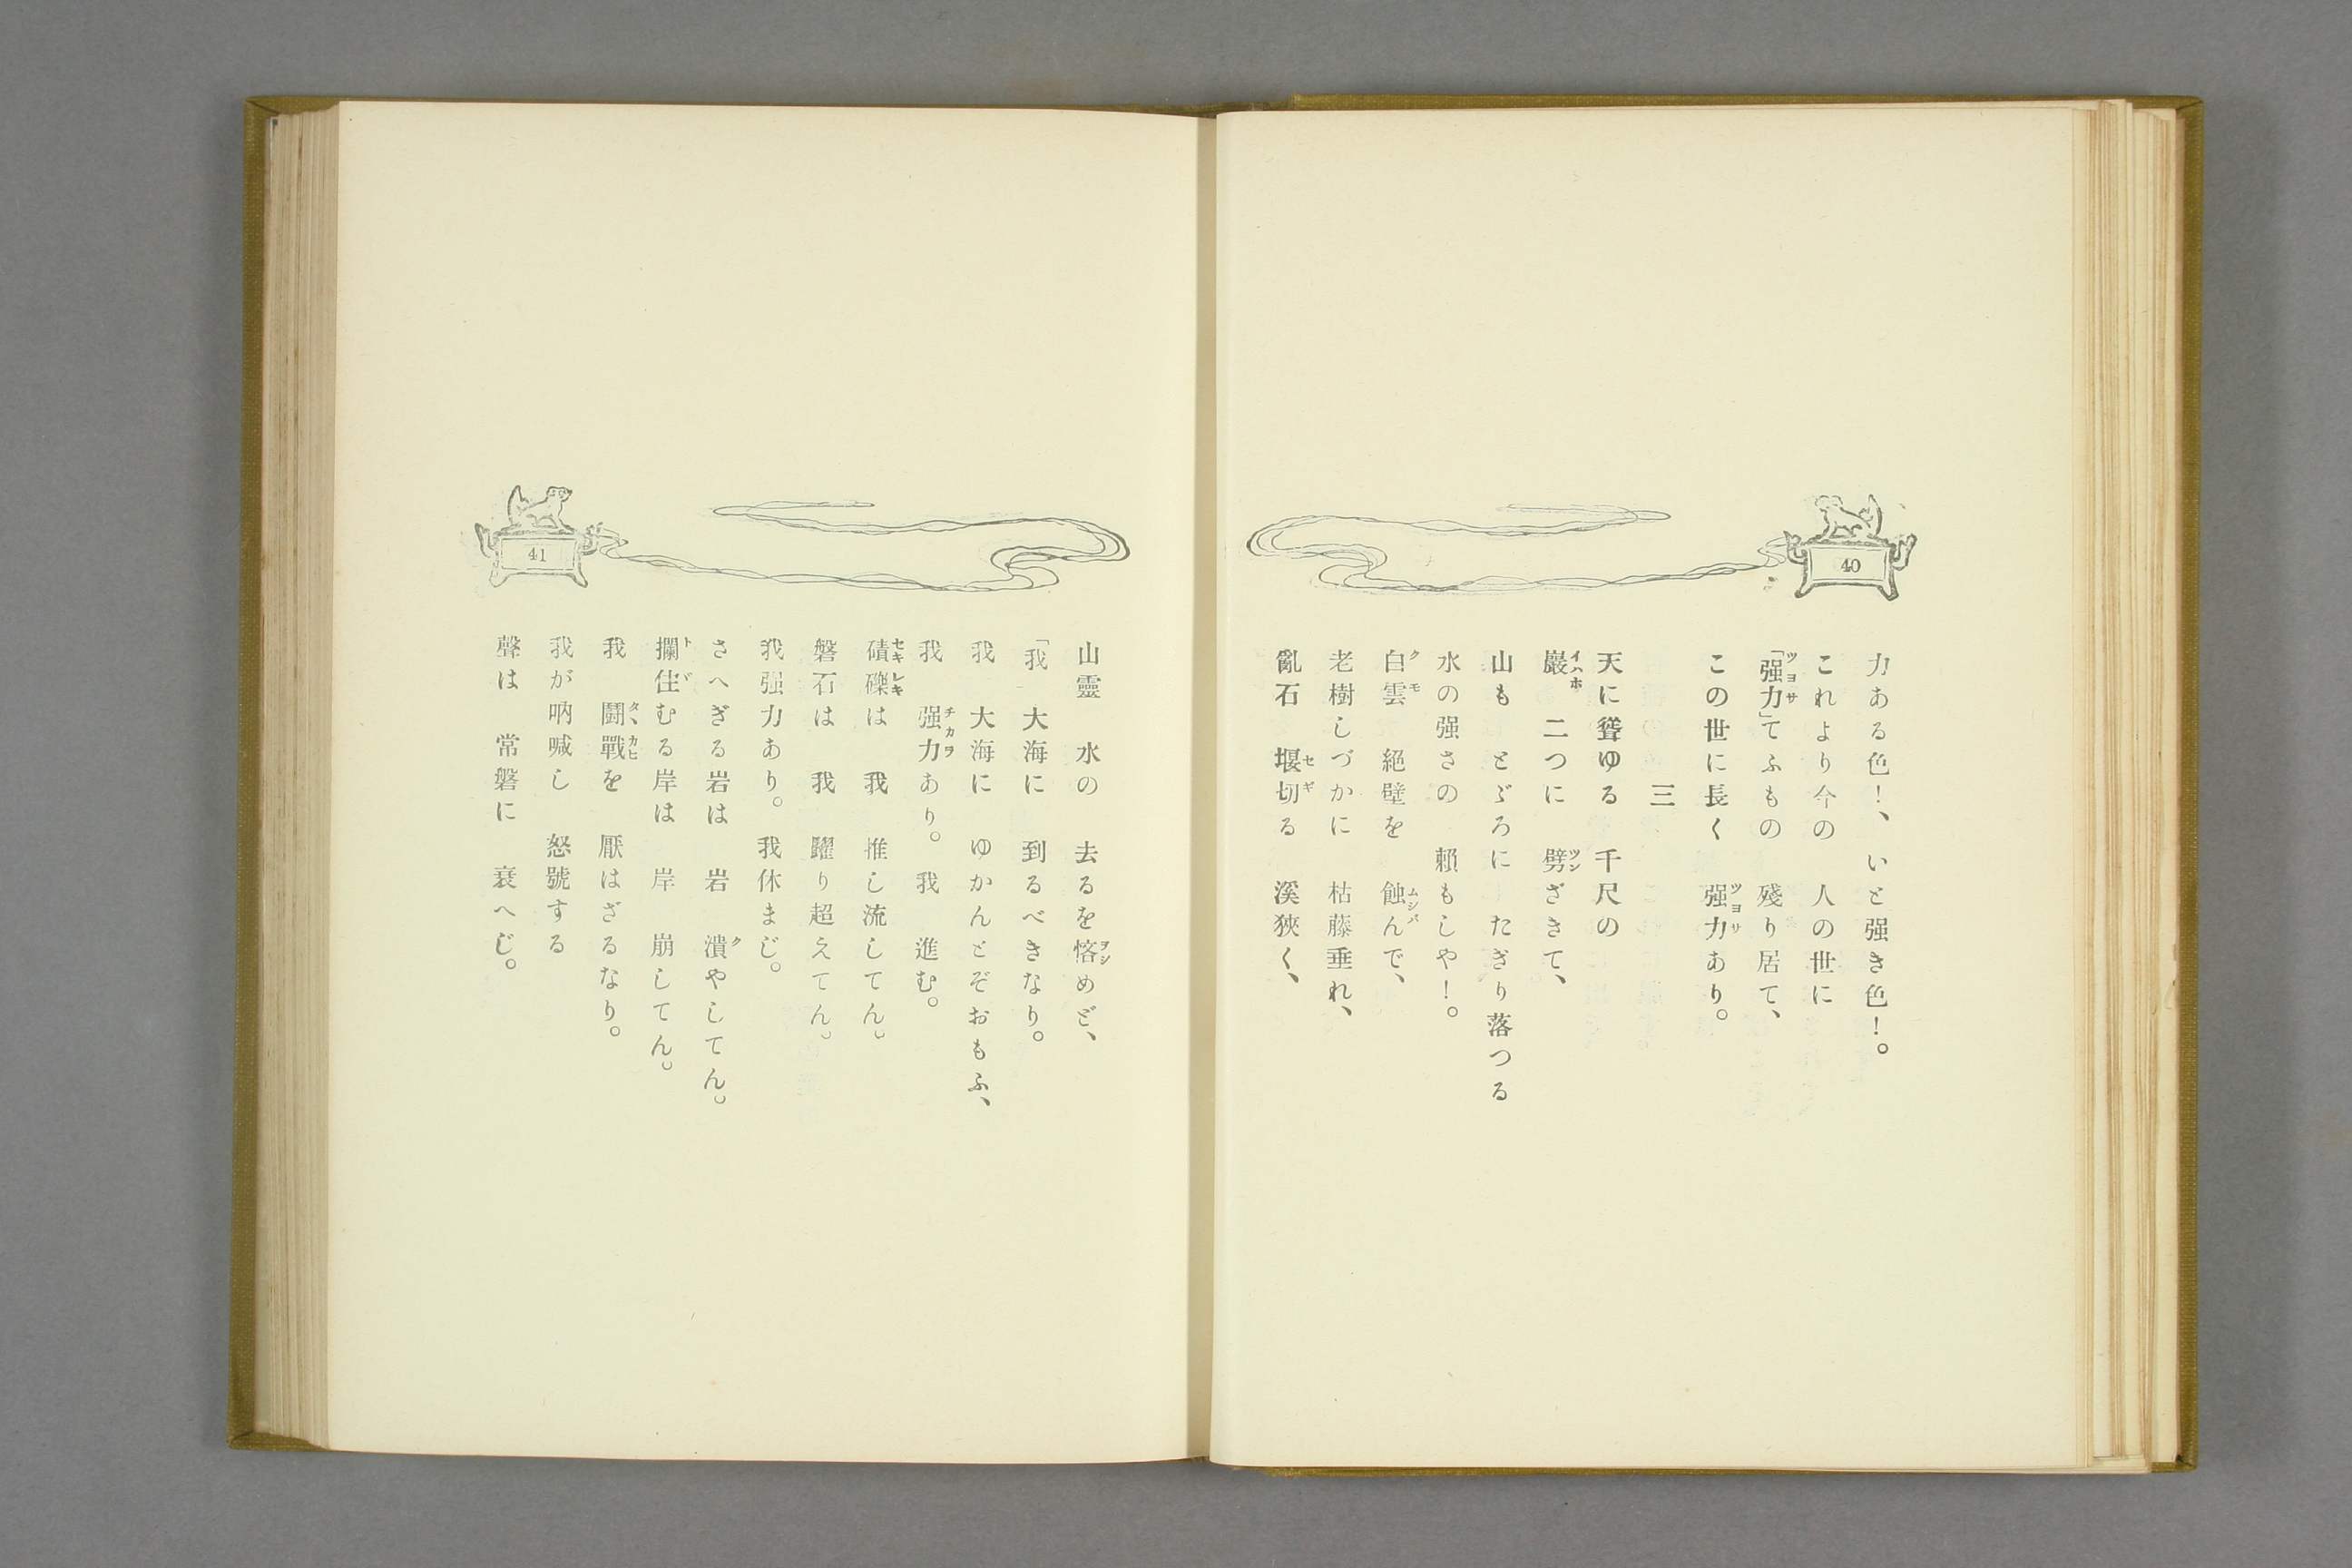 40
力ある色！、いと强き色！。
これより今の　人の世に
「强力」てふもの　殘り居て、
この世に長く　强力あり。
三
天に聳ゆる　千尺の
巖　二つに　劈ざきて、
山も　とゞろに　たぎり落つる
水の强さの　賴もしや！。
白雲　絕壁を　蝕んで、
老樹しづかに　枯藤垂れ、
亂石　堰切る　溪狹く、
41
山靈　水の　去るを悋めど、
「我　大海に　到るべきなり。
我　大海に　ゆかんとぞおもふ、
我　强力あり。我　進む。
磧礫は　我　推し流してん。
磐石は　我　躍り超えてん。
我强力あり。　我休まじ。
さへぎる岩は　岩　潰やしてん。
攔住むる岸は　岸　崩してん。
我　鬪戰を　厭はざるなり。
我が吶喊し　怒號する
聲は　常磐に　衰へじ。